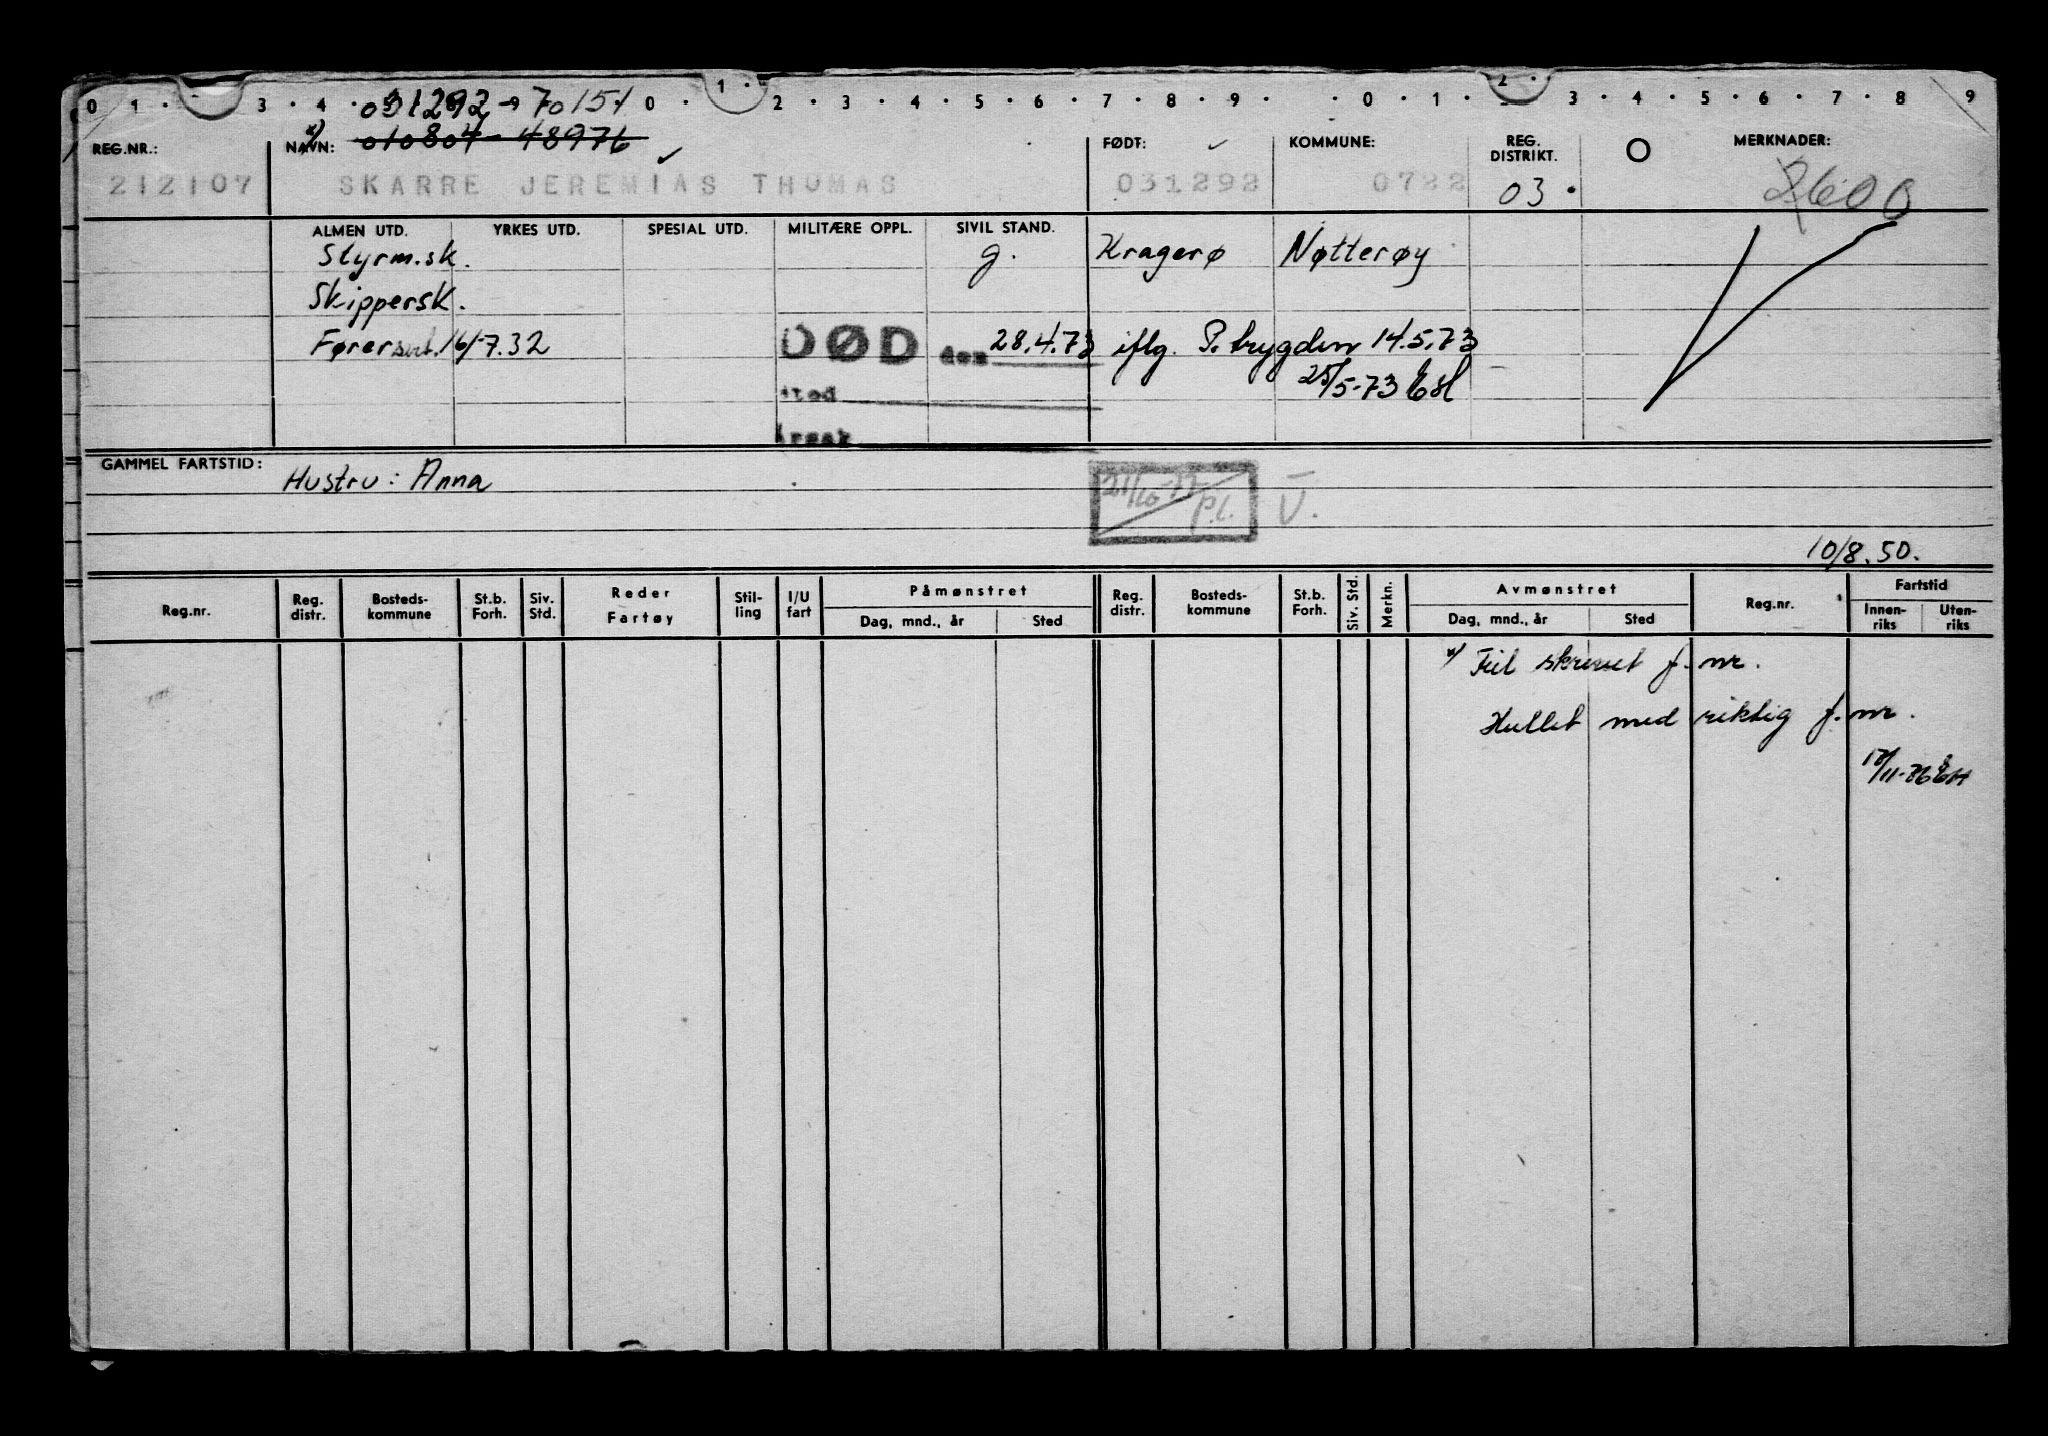 0 1 · 3 · 4 · 0 · 1 · 2 · 3 · 4 · 5 · 6 · 7 · 8 · 9 · · 0 · 1 · 2 · 3 · 4 · 5 · 6 · 7 · 8 9
031292 - 70151
x) 010804 - 48976
REG.NR.: NAVN: FØDT: KOMMUNE: REG. DISTRIKT. O MERKNADER:
212107 SKARRE JEREMIAS THOMAS 031292 0722 03. 2600
ALMEN UTD. YRKES UTD. SPESIAL UTD. MILITÆRE OPPL. SIVIL STAND.
Styrm.sk. g. Kragerø Nøtterøy
Skippersk.
Førersert. 16/7.32 DØD den 28.4.73 iflg. P. trygden 14.5.73
25/5-73 EH
sted
Årsak
GAMMEL FARTSTID: Hustru: Anna
21/10-77 P.L. V.
10/8.50.
Reg.nr. Reg. distr. Bosteds-kommune St.b. Forh. Siv. Std. Reder Fartøy Stil-ling I/U fart Påmønstret Dag, mnd., år Sted Reg. distr. Bosteds-kommune St.b. Forh. Siv. Std. Merkn. Avmønstret Dag, mnd., år Sted Reg.nr. Fartstid Innen-riks Uten-riks
x) Feil skrevet f. nr.
Hullet med riktig f. nr.